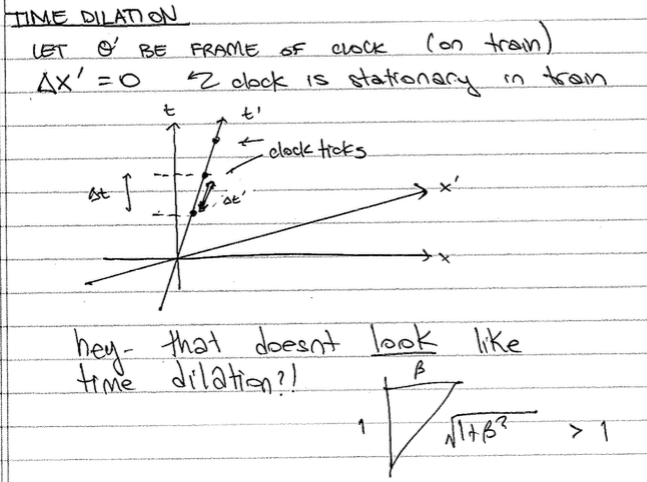 TIME DILATION
LET O' BE FRAME OF CLOCK (on train)
Δx' = 0 ↰ clock is stationary in train
t t'
← clock ticks
Δt Δt'
x'
x
hey- that doesnt look like
time dilation?!
β
1 √1+β² > 1